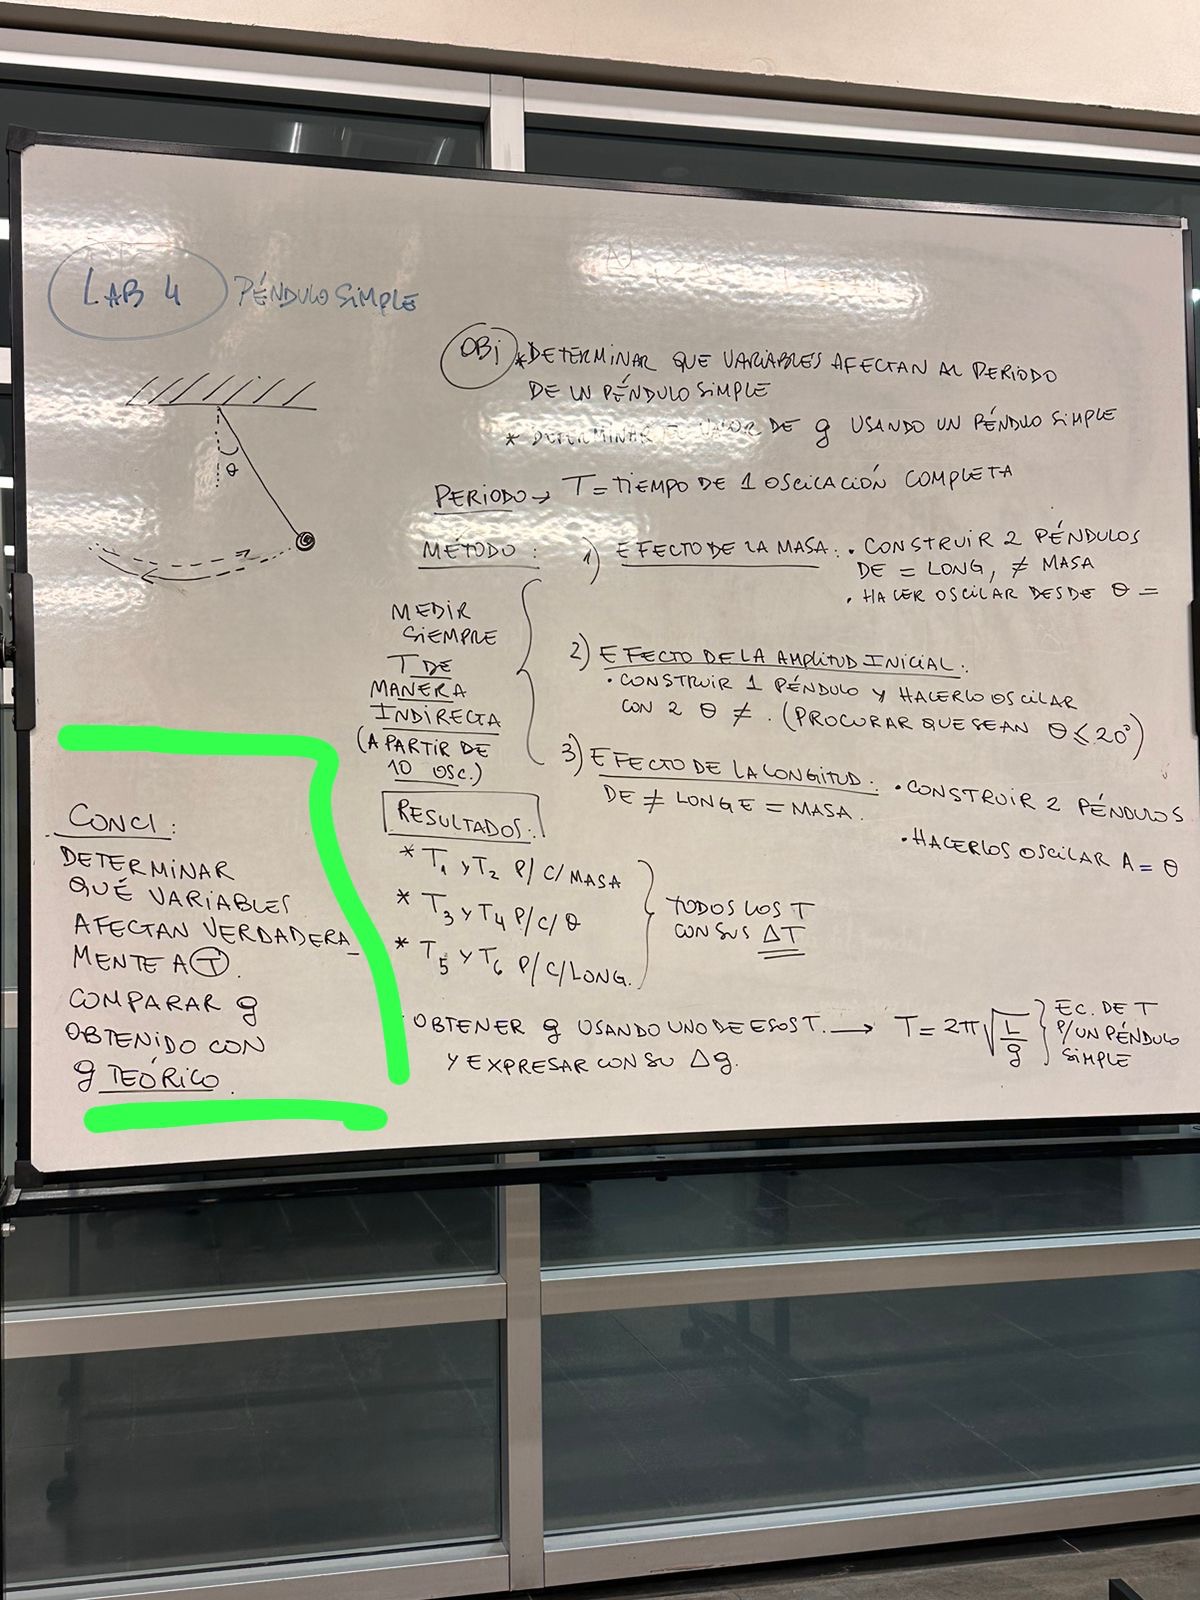 LAB 4 PÉNDULO SIMPLE
OBJ * DETERMINAR QUE VARIABLES AFECTAN AL PERIODO
DE UN PÉNDULO SIMPLE
* DETERMINAR EL VALOR DE g USANDO UN PÉNDULO SIMPLE
θ
PERIODO → T = TIEMPO DE 1 OSCILACIÓN COMPLETA
MÉTODO:
1) EFECTO DE LA MASA: • CONSTRUIR 2 PÉNDULOS
DE = LONG, ≠ MASA
• HACER OSCILAR DESDE θ =
MEDIR
SIEMPRE
T DE
MANERA
INDIRECTA
(A PARTIR DE
10 OSC.)
2) EFECTO DE LA AMPLITUD INICIAL:
• CONSTRUIR 1 PÉNDULO Y HACERLO OSCILAR
CON 2 θ ≠. (PROCURAR QUE SEAN θ ≤ 20°)
3) EFECTO DE LA LONGITUD: • CONSTRUIR 2 PÉNDULOS
DE ≠ LONG E = MASA.
• HACERLOS OSCILAR A = θ
RESULTADOS:
* T₁ y T₂ P/C/MASA
* T₃ y T₄ P/C/θ
* T₅ y T₆ P/C/LONG.
TODOS LOS T
CON SUS ΔT
• OBTENER g USANDO UNO DE ESOS T. → T = 2π√(L/g) } EC. DE T
P/UN PÉNDULO
SIMPLE
Y EXPRESAR CON SU Δg.
CONCl:
DETERMINAR
QUÉ VARIABLES
AFECTAN VERDADERA_
MENTE A T.
COMPARAR g
OBTENIDO CON
g TEÓRICO.